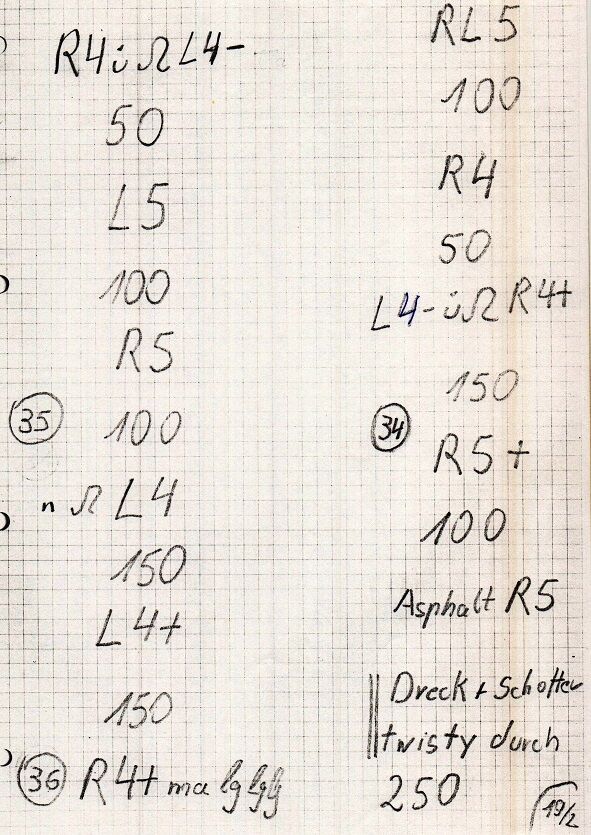 R4üΩL4-
50
L5
100
R5
35 100
n Ω L4
150
L4+
150
36 R4+ ma lg lg lg
RL5
100
R4
50
L4- ü Ω R4+
150
34
R5+
100
Asphalt R5
Dreck + Schotter
twisty durch
250
19/2